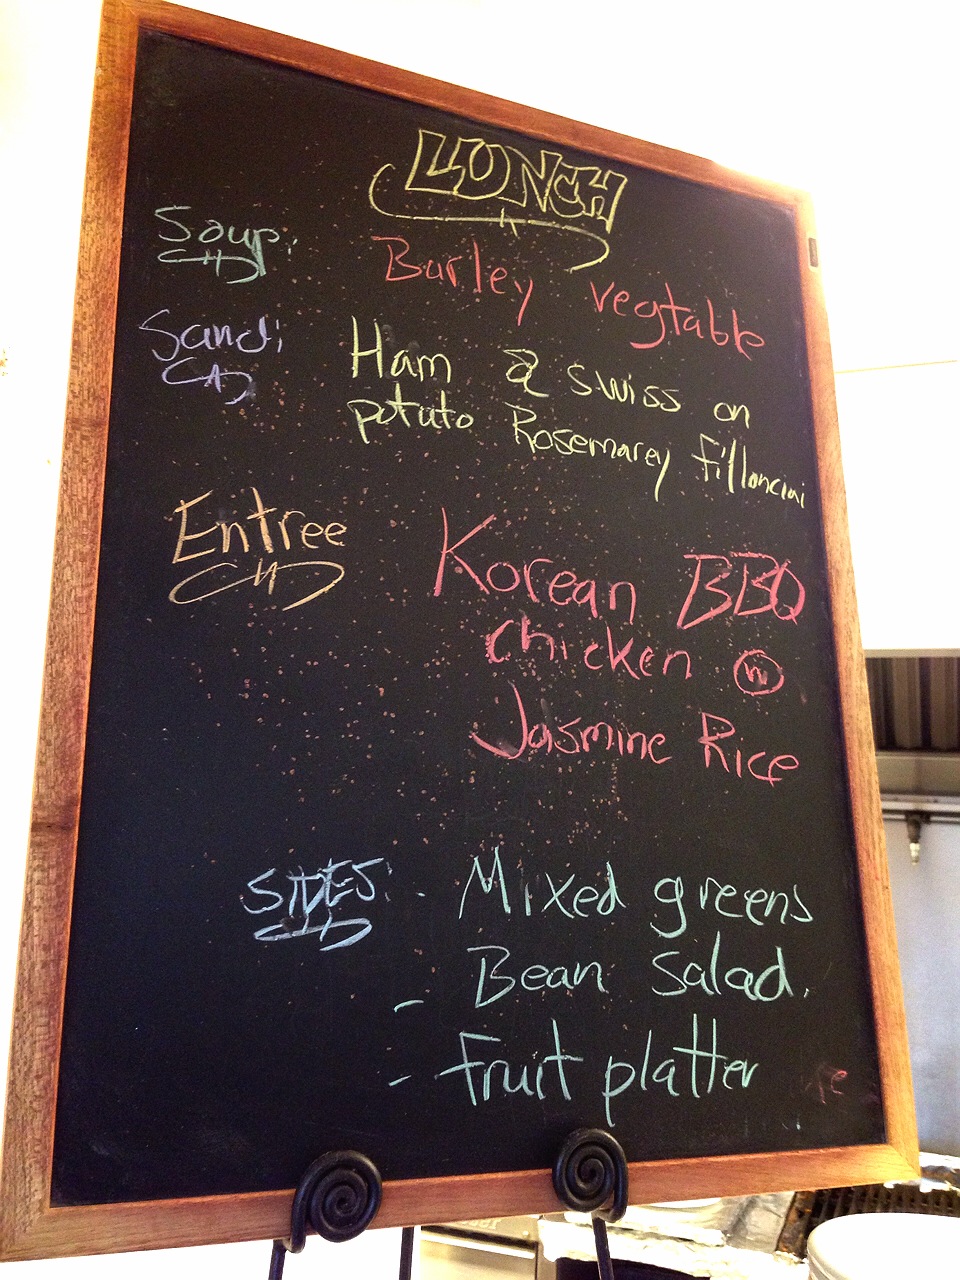 LUNCH
Soup: Barley vegtable
Sand: Ham & swiss on
potato Rosemarey fillonciai
Entree Korean BBQ
Chicken W
Jasmine Rice
SIDES: - Mixed greens
- Bean Salad.
- Fruit platter